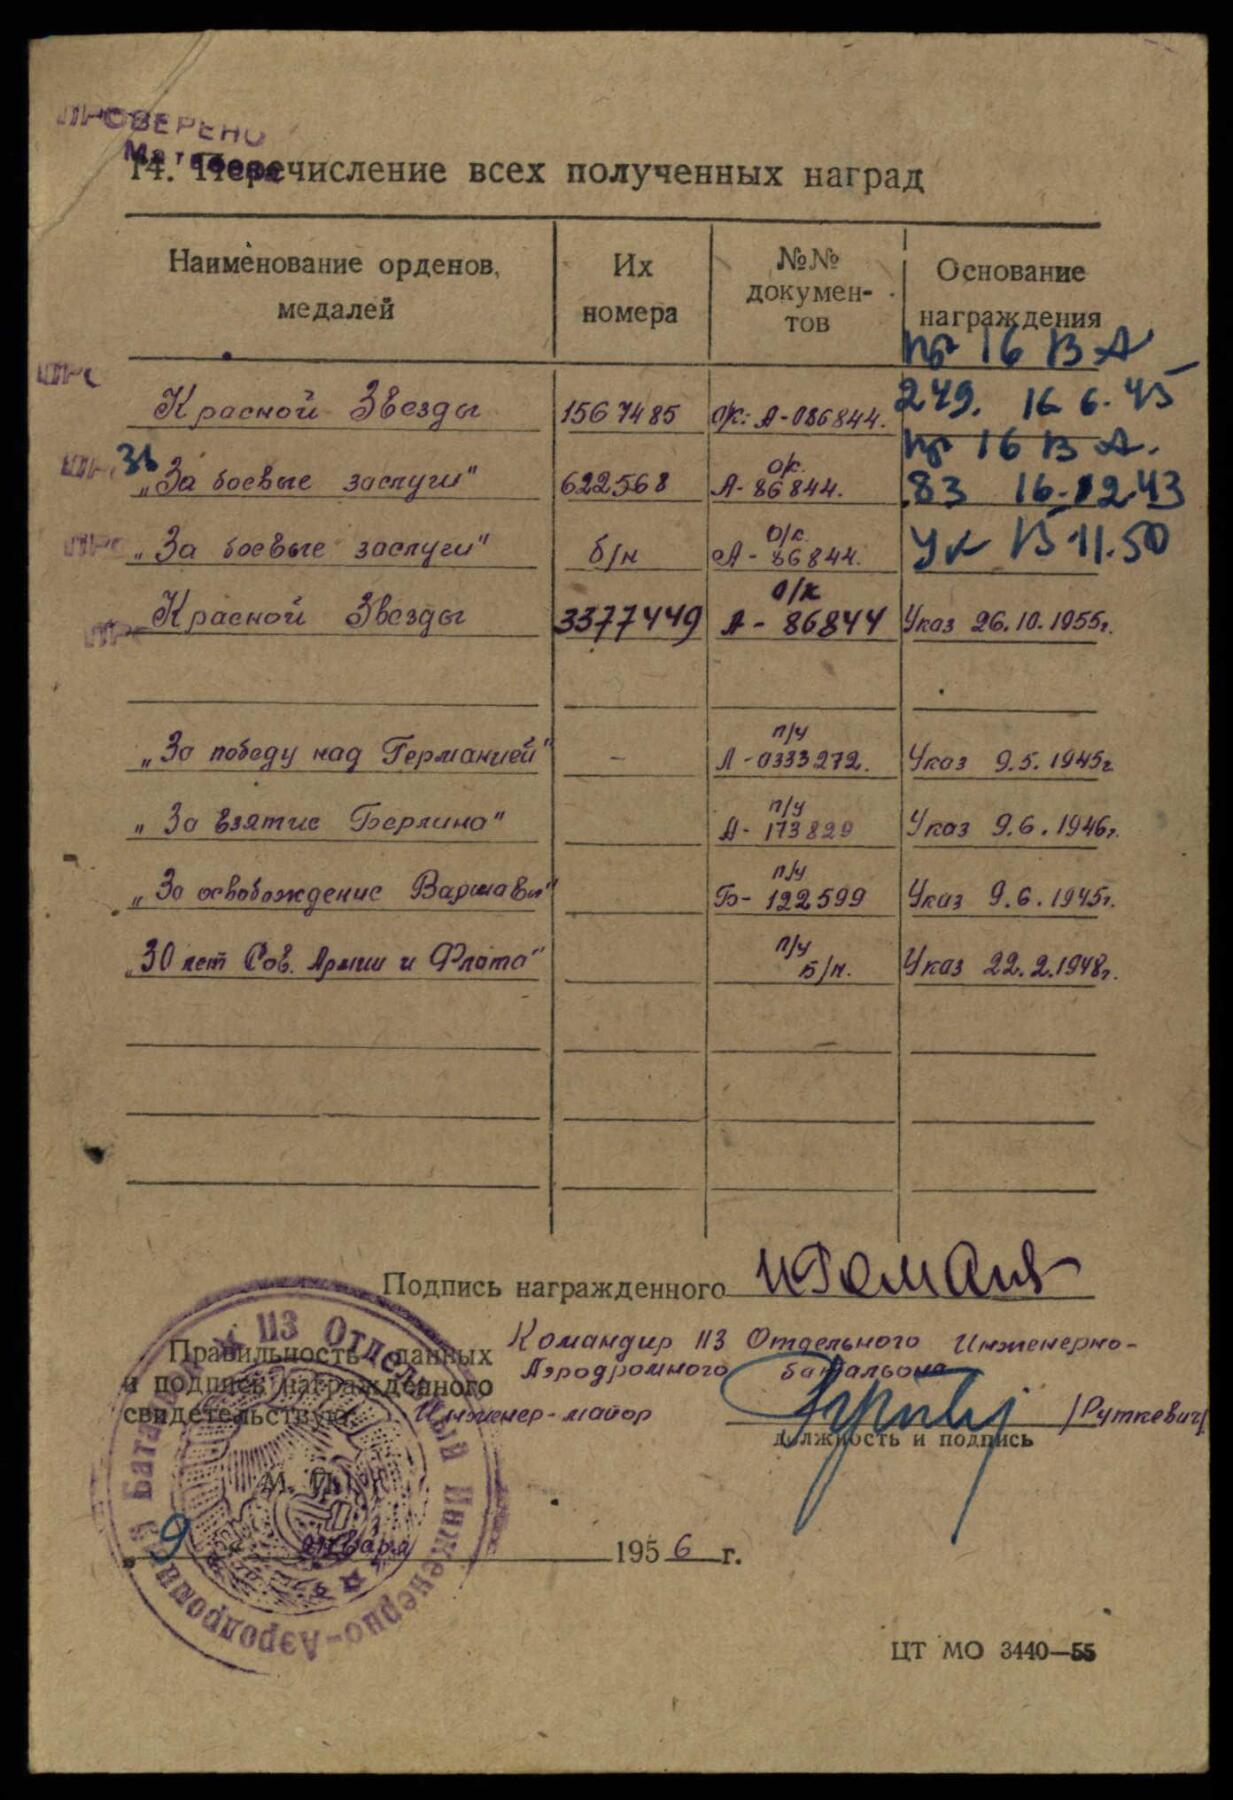 ПРОВЕРЕНО
14. Перечисление всех полученных наград
Наименование орденов, медалей
Их номера
№№ документов
Основание награждения
Красной Звезды 1567485 о/к: А-086844. пр 16 ВА 249. 16 6.45
Зв „За боевые заслуги" 622568 о/к. А-86844. пр 16 ВА. 83 16.12.43
„За боевые заслуги" б/н о/к. А-86844. Ук 15 11.50
Красной Звезды 3377449 о/к А-86844 Указ 26.10.1955г.
„За победу над Германией" - п/у А-0333272. Указ 9.5.1945г
„За взятие Берлина" п/у А-173829 Указ 9.6.1946г.
„За освобождение Варшавы" п/у Б-122599 Указ 9.6.1945г.
„30 лет Сов. Армии и Флота" п/у Б/н. Указ 22.2.1948г.
Подпись награжденного
Правильность данных
и подпись награжденного
свидетельствую: Инженер-майор
Командир 113 Отдельного Инженерно-
Аэродромного батальона
/Руткевич/
должность и подпись
М. П.
9 января 1956 г.
113 Отдельный Инженерно-Аэродромный Батальон
ЦТ МО 3440—55